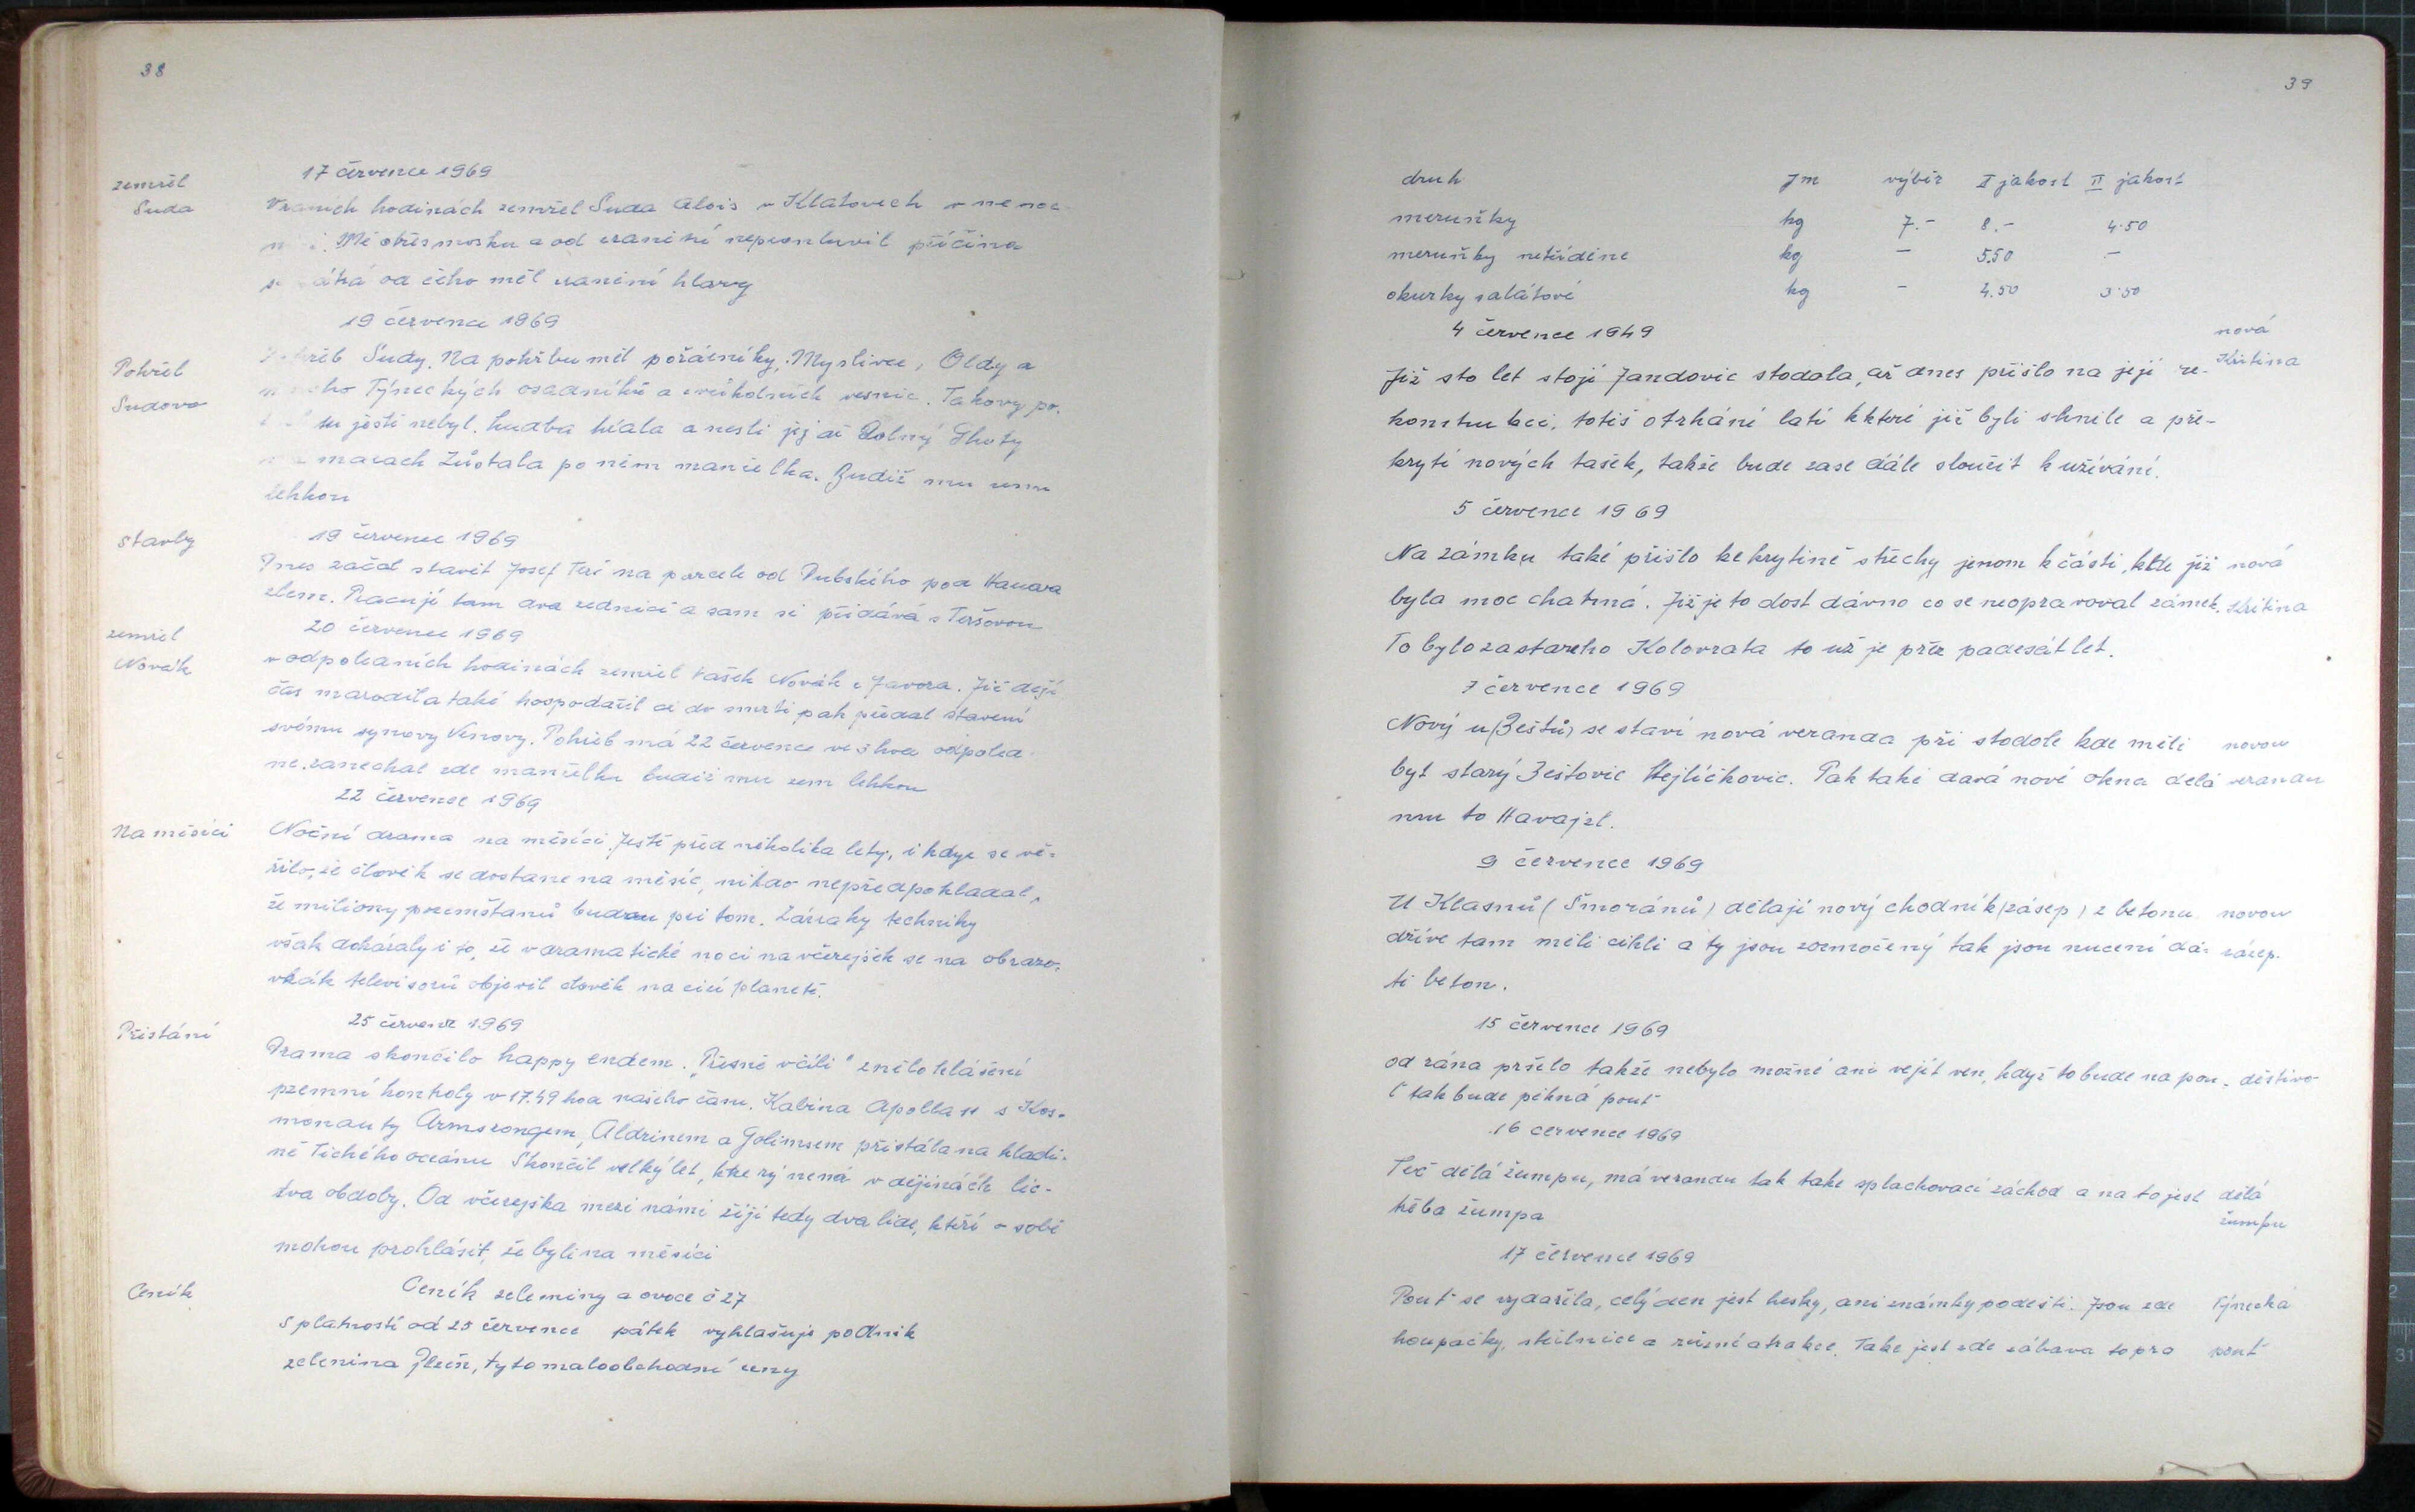 38
zemřel
Suda
17 července 1969
V raních hodinách zemřel Suda Alois v Klatovech v nemoc-
Mě otřes mosku a od uranění nepromluvil příčina
od čeho měl uranění hlavy
19 červenec 1969
Pohřeb
Sudova
Sudy. Na pohřbu mět pořádníky, Myslivce, Oldy a
Týneckých osadníků a vesnic. Takovy po-
tu ještě nebyl. hudba hrála a nesli jej až Dolný Lhoty
marach Zůstala po ním manželka. Budiž mu zem
lehkou
stavby
19 červenec 1969
Dnes začal stavit Josef Terč na parcele od Dubského pod Havara
elem. Pracují tam dva zedníci a sam si přidává s Teršovou
zemřel
Novák
20 červenec 1969
v odpoledních hodinách zemřel Vašek Novák z Javora. Již delší
čas marodil a také hospodařil až do smrti pak předal stavení
svému synovy Venovy. Pohřeb má 22 července ve 3 hod odpoled-
ne. zanechal zde manželku budiž mu zem lehkou
22 července 1969
Na měsíci
Noční drama na měsíci. Ještě před několika lety, i kdyz se vě-
řilo, že člověk se dostane na měsíc, nikdo nepředpokladal,
že miliony pozemšťanů budou při tom. Zázraky techniky
však dokázaly i to, že v dramatické noci na včerejšek se na obrazo-
vkách televisorů objevil člověk na cizí planetě.
25 července 1969
Přistání
Drama skončilo happy endem. „Přesně v cíli" znělo hlášení
pzemní kontroly v 17.49 hod našeho času. Kabina Apolla 11 s Kos-
monauty Armsrongem, Aldrinem a Golimsem přistála na hladi-
ně Tichého oceánu Skončil velký let, který nemá v dějinách lic-
tva obdoby. Od včerejška mezi námi žijí tedy dva lide, kteří o sobě
mohou prohlásit, že byli na měsíci
Ceník
Ceník zeleniny a ovoce č 27
s platností od 25 července pátek vyhlašuje podnik
zelenina Plzeň, tyto maloobchodní ceny
39
druh Jm výběr I jakost II jakost
meruňky kg 7.- 8.- 4.50
meruňky netříděne kg - 5.50 -
okurky salátové kg - 4.50 3.50
4 července 1949
nová
Kritina
Již sto let stojí Jandovic stodola, až dnes přišlo na její re-
konstrukci, totiš otrhání latí kkteré již byli shnile a pře-
krytí nových tašek, takže bude zase dále sloužit k užívání.
5 července 1969
Na zámku také přišlo ke krytině střechy jenom k části, kde již nová
byla moc chatrná. Již je to dost dávno co se neopravoval zámek. kritina
To bylo za stareho Kolovrata to už je přez padesát let.
7 července 1969
Nový u (Beštů) se staví nová veranda při stodole kde měli novou
byt starý Beštovic Hejlíčkovic. Pak také dává nové okna dělá verandu
mu to Havajzl.
9 července 1969
U Klasnů (Šmoránů) dělají nový chodník (zásep) z betonu novou
dříve tam měli cihli a ty jsou rozmočený tak jsou nuceni dá- zásep.
ti beton.
15 července 1969
od rána pršelo takže nebylo možné ani vejít ven, když to bude na pou- deštivo
ť tak bude pěkná pouť
16 cervence 1969
Terč dělá žumpu, má verandu tak take splachovací záchod a na to jest dělá
třeba žumpa
žumpu
17 července 1969
Pouť se vydařila, celý den jest hesky, ani známky podešti. Jsou zde Týnecká
houpačky, střelnice a různé atrakce. Take jest zde zábava to pro pouť